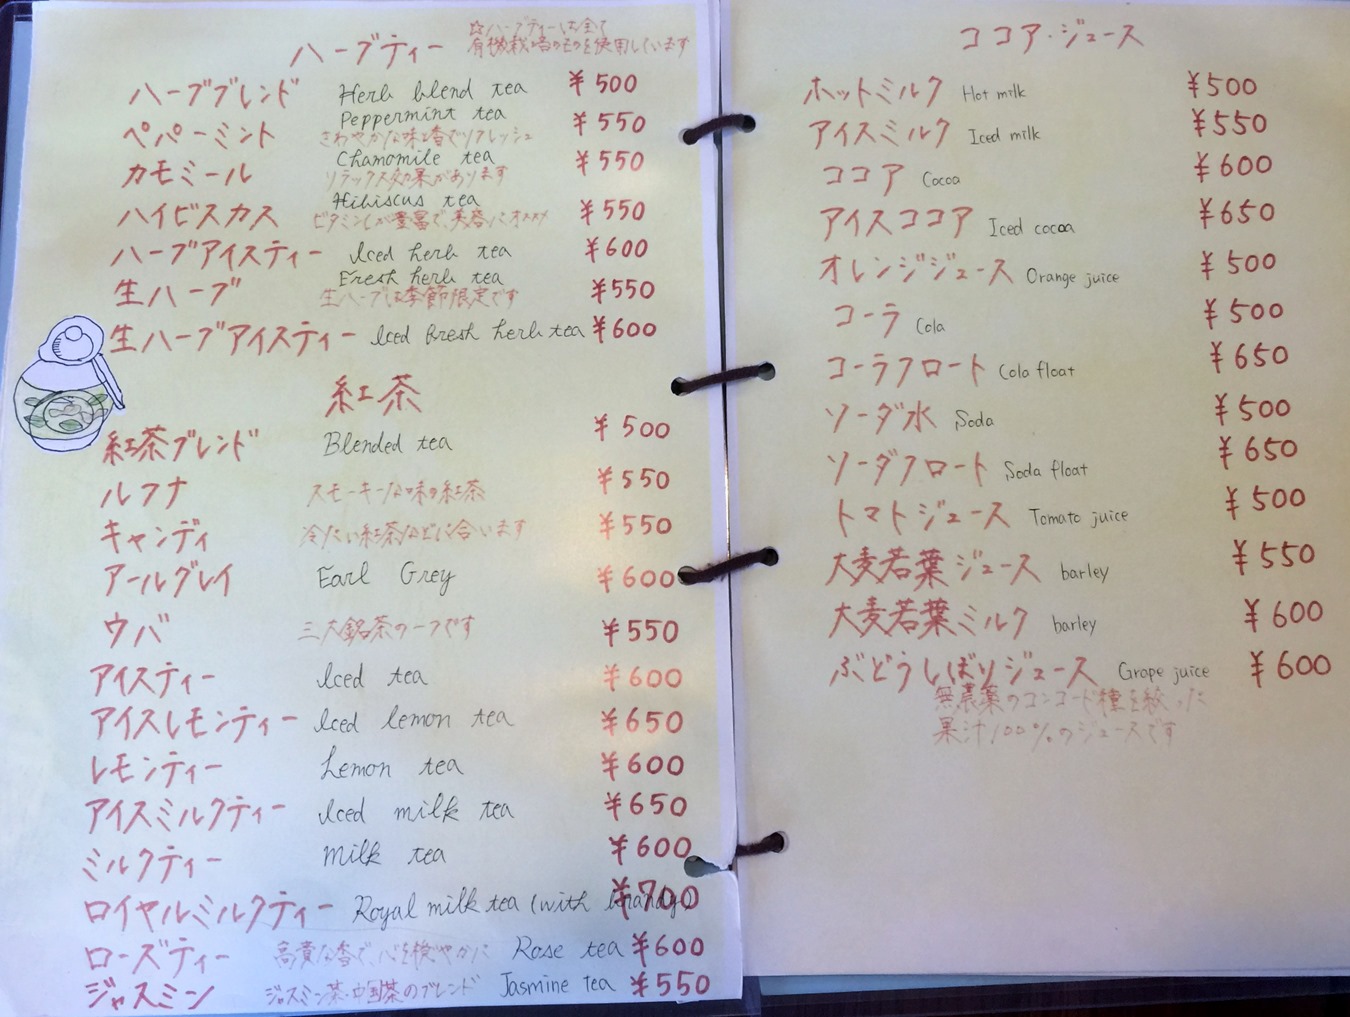 ハーブティー
☆ハーブティーは全て
有機栽培のものを使用しています
ハーブブレンド Herb blend tea ¥500
ペパーミント Peppermint tea ¥550
さわやかな味と香でリフレッシュ
カモミール Chamomile tea ¥550
リラックス効果があります
ハイビスカス Hibiscus tea ¥550
ビタミンCが豊富で、美容にオススメ
ハーブアイスティー Iced herb tea ¥600
生ハーブ Fresh herb tea ¥550
生ハーブは季節限定です
生ハーブアイスティー Iced fresh herb tea ¥600
紅茶
紅茶ブレンド Blended tea ¥500
ルフナ スモーキーな味の紅茶 ¥550
キャンディ 冷たい紅茶などに合います ¥550
アールグレイ Earl Grey ¥600
ウバ 三大銘茶の一つです ¥550
アイスティー Iced tea ¥600
アイスレモンティー Iced lemon tea ¥650
レモンティー Lemon tea ¥600
アイスミルクティー Iced milk tea ¥650
ミルクティー Milk tea ¥600
ロイヤルミルクティー Royal milk tea (with brandy) ¥700
ローズティー 高貴な香で、心を穏やかに Rose tea ¥600
ジャスミン ジャスミン茶・中国茶のブレンド Jasmine tea ¥550
ココア・ジュース
ホットミルク Hot milk ¥500
アイスミルク Iced milk ¥550
ココア Cocoa ¥600
アイスココア Iced cocoa ¥650
オレンジジュース Orange juice ¥500
コーラ Cola ¥500
コーラフロート Cola float ¥650
ソーダ水 Soda ¥500
ソーダフロート Soda float ¥650
トマトジュース Tomato juice ¥500
大麦若葉ジュース barley ¥550
大麦若葉ミルク barley ¥600
ぶどうしぼりジュース Grape juice ¥600
無農薬のコンコード種を絞った
果汁100%のジュースです